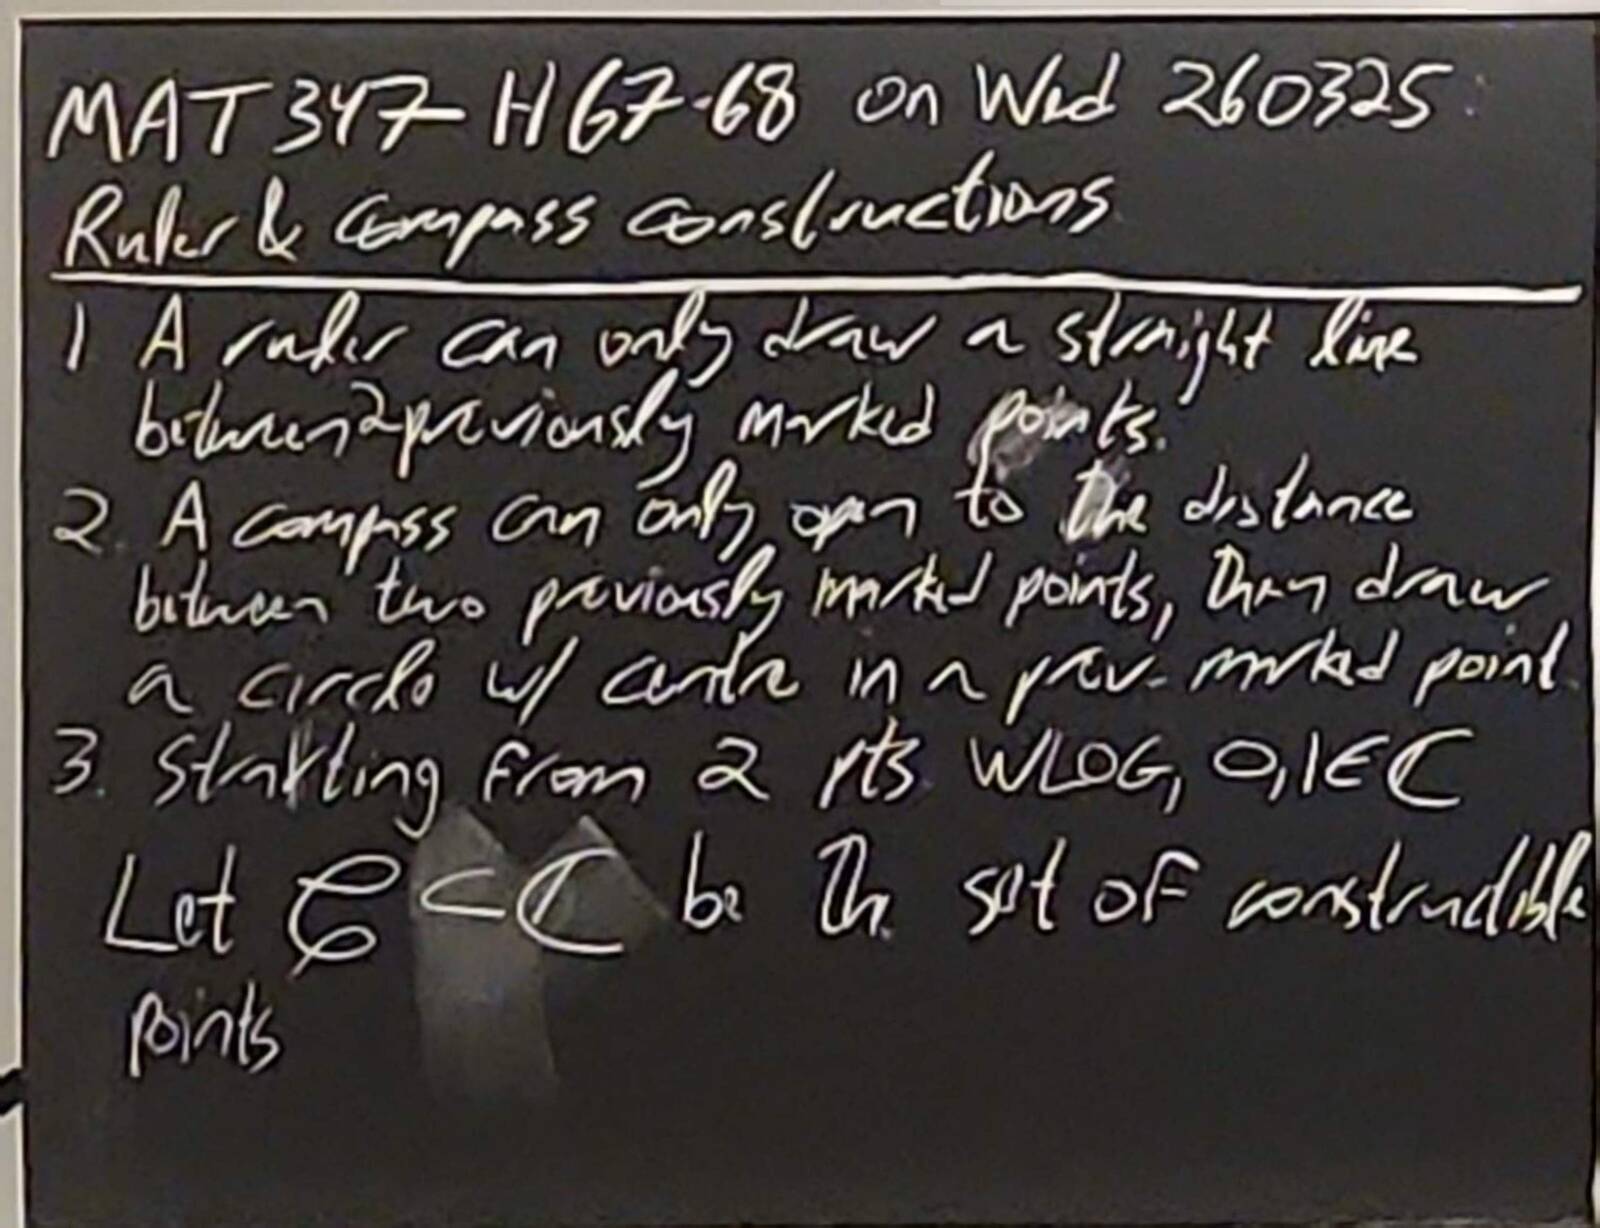 MAT347 H67-68 on Wed 260325
Ruler & Compass constructions
1 A ruler can only draw a straight line
between 2 previously marked points.
2. A compass can only open to the distance
between two previously marked points, then draw
a circle w/ centre in a prev. marked point.
3. Starting from 2 pts. WLOG, 0,1∈ℂ
Let 𝒞⊂ℂ be the set of constructible
points